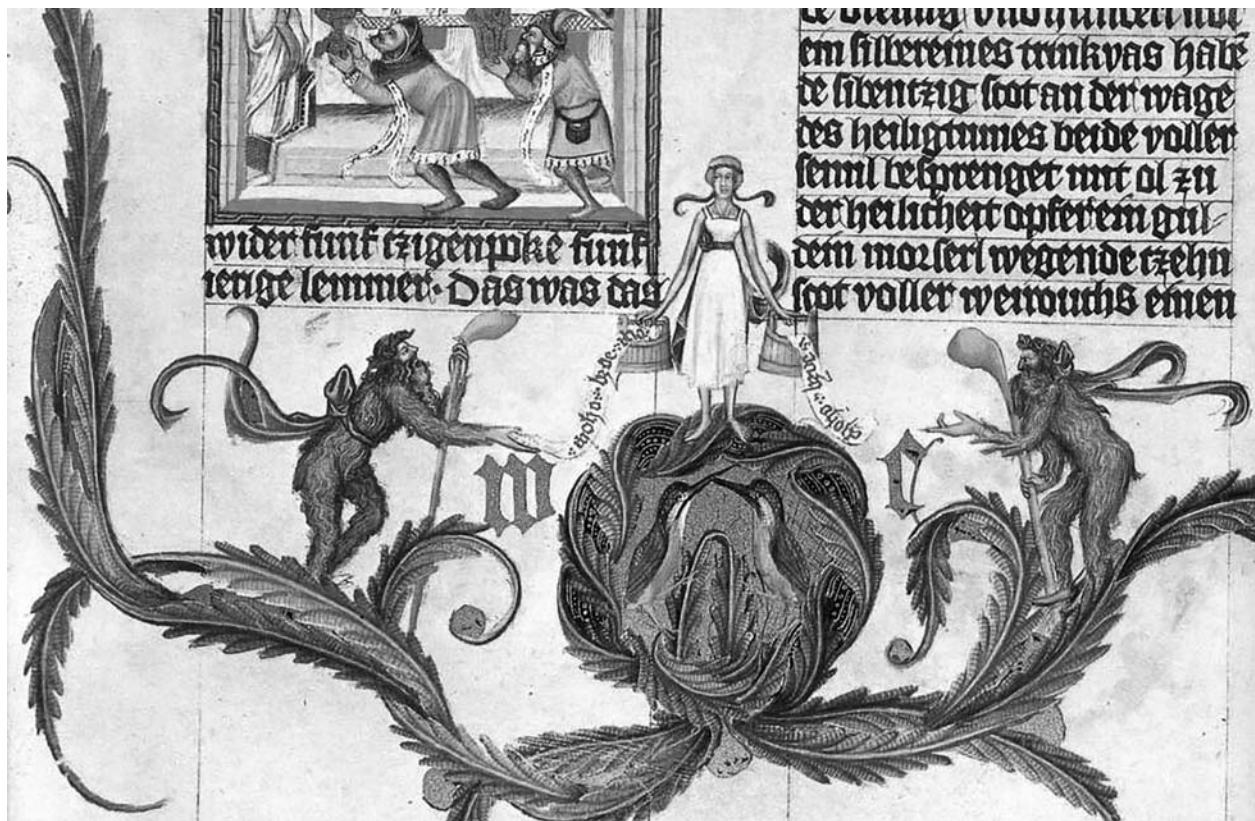 wider funf tzigenpoke funf
ierige lemmer· Das was das
em silbereines trinkvas habē
de sibentzig scot an der wage
des heiligtumes beide voller
semil besprenget mit ol zu
der heilicheit opfer ein gul-
dein morserl wegende tzehn
scot voller weirouchs einen
W
E